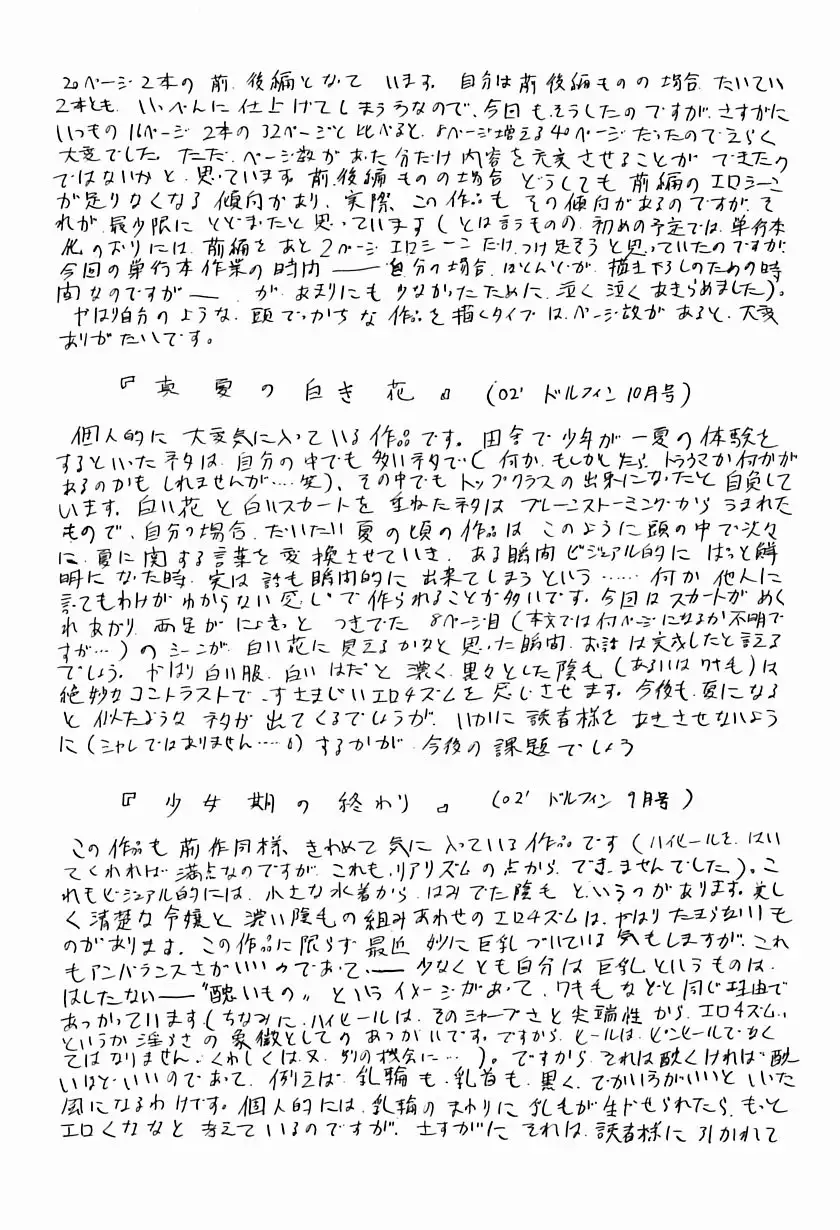 20ページ2本の前、後編となって います。自分は前後編ものの場合、たいてい
2本とも、いっぺんに仕上げてしまうなので、今回も、そうしたのですが、さすがに
いつもの16ページ2本の32ページと比べると、8ページ増える40ページだったのでえらく
大変でした。ただ、ページ数があった分だけ内容を充実させることができたの
ではないかと、思っています。前、後編ものの場合どうしても前編のエロシーン
が足りなくなる傾向があり、実際、この作品もその傾向があるのですが、そ
れが最少限にとどまったと思っています(とは言うものの、初めの予定では、単行本
化のおりには、前編をあと2ページエロシーンだけ、つけ足そうと思っていたのですが、
今回の単行本作業の時間――自分の場合、ほとんどが、描き下ろしのための時
間なのですが――、が、あまりにも少なかったために、泣く泣くあきらめました)。
やはり自分のような、頭でっかちな作品を描くタイプは、ページ数があると、大変
ありがたいです。
『真夏の白き花』(02' ドルフィン10月号)
個人的に大変気に入っている作品です。田舎で少年が一夏の体験を
するといったネタは、自分の中でも多いネタで(何か、もしかしたら、トラウマか何かが
あるのかもしれませんが……笑)、その中でもトップクラスの出来になったと自負して
います。白い花と白いスカートを重ねたネタはブレーンストーミングからうまれた
もので、自分の場合、だいたい夏の頃の作品はこのように頭の中で次々
に、夏に関する言葉を変換させていき、ある瞬間ビジュアル的にはっと鮮
明になった時、実は話も瞬間的に出来てしまうという……何か他人に
言ってもわけがわからない感じで作られることが多いです。今回はスカートがめく
れあがり、両足がにょきっとつきでた8ページ目(本文では何ページになるか不明で
すが…)のシーンが、白い花に見えるかなと思った瞬間、お話は完成したと言える
でしょう。やはり白い服、白いはだと濃く、黒々とした陰毛(あるいはワキ毛)は
絶妙なコントラストで、すさまじいエロチズムを感じさせます。今後も、夏になる
と似たようなネタが出てくるでしょうが、いかに読者様をあきさせないよう
に(シャレではありません……)するかが今後の課題でしょう
『少女期の終わり』(02' ドルフィン9月号)
この作品も前作同様、きわめて気に入っている作品です(ハイヒールを、はい
てくれれば満点なのですが、これも、リアリズムの点から、できませんでした)。こ
れもビジュアル的には、小さな水着から、はみでた陰毛というのがあります。美し
く清楚な令嬢と濃い陰毛の組みあわせのエロチズムは、やはりたまらないも
のがあります。この作品に限らず最近妙に巨乳づいている気もしますが、これ
もアンバランスさがいいのであって、――少なくとも自分は巨乳というものは、
はしたない――“醜いもの”というイメージがあって、ワキ毛などと同じ理由で
あつかっています(ちなみに、ハイヒールは、そのシャープさと尖端性から、エロチズム、
というか淫らさの象徴としてのあつかいです。ですから、ヒールは、ピンヒールでなく
てはなりません。くわしくは、又、別の機会に…)。ですから、それは醜くければ醜
いほどいいのであって、例えば、乳輪も、乳首も、黒く、でかいほうがいいといった
風になるわけです。個人的には、乳輪のまわりに乳毛が生やせられたら、もっと
エロくなるなと考えているのですが、さすがにそれは、読者様に引かれて